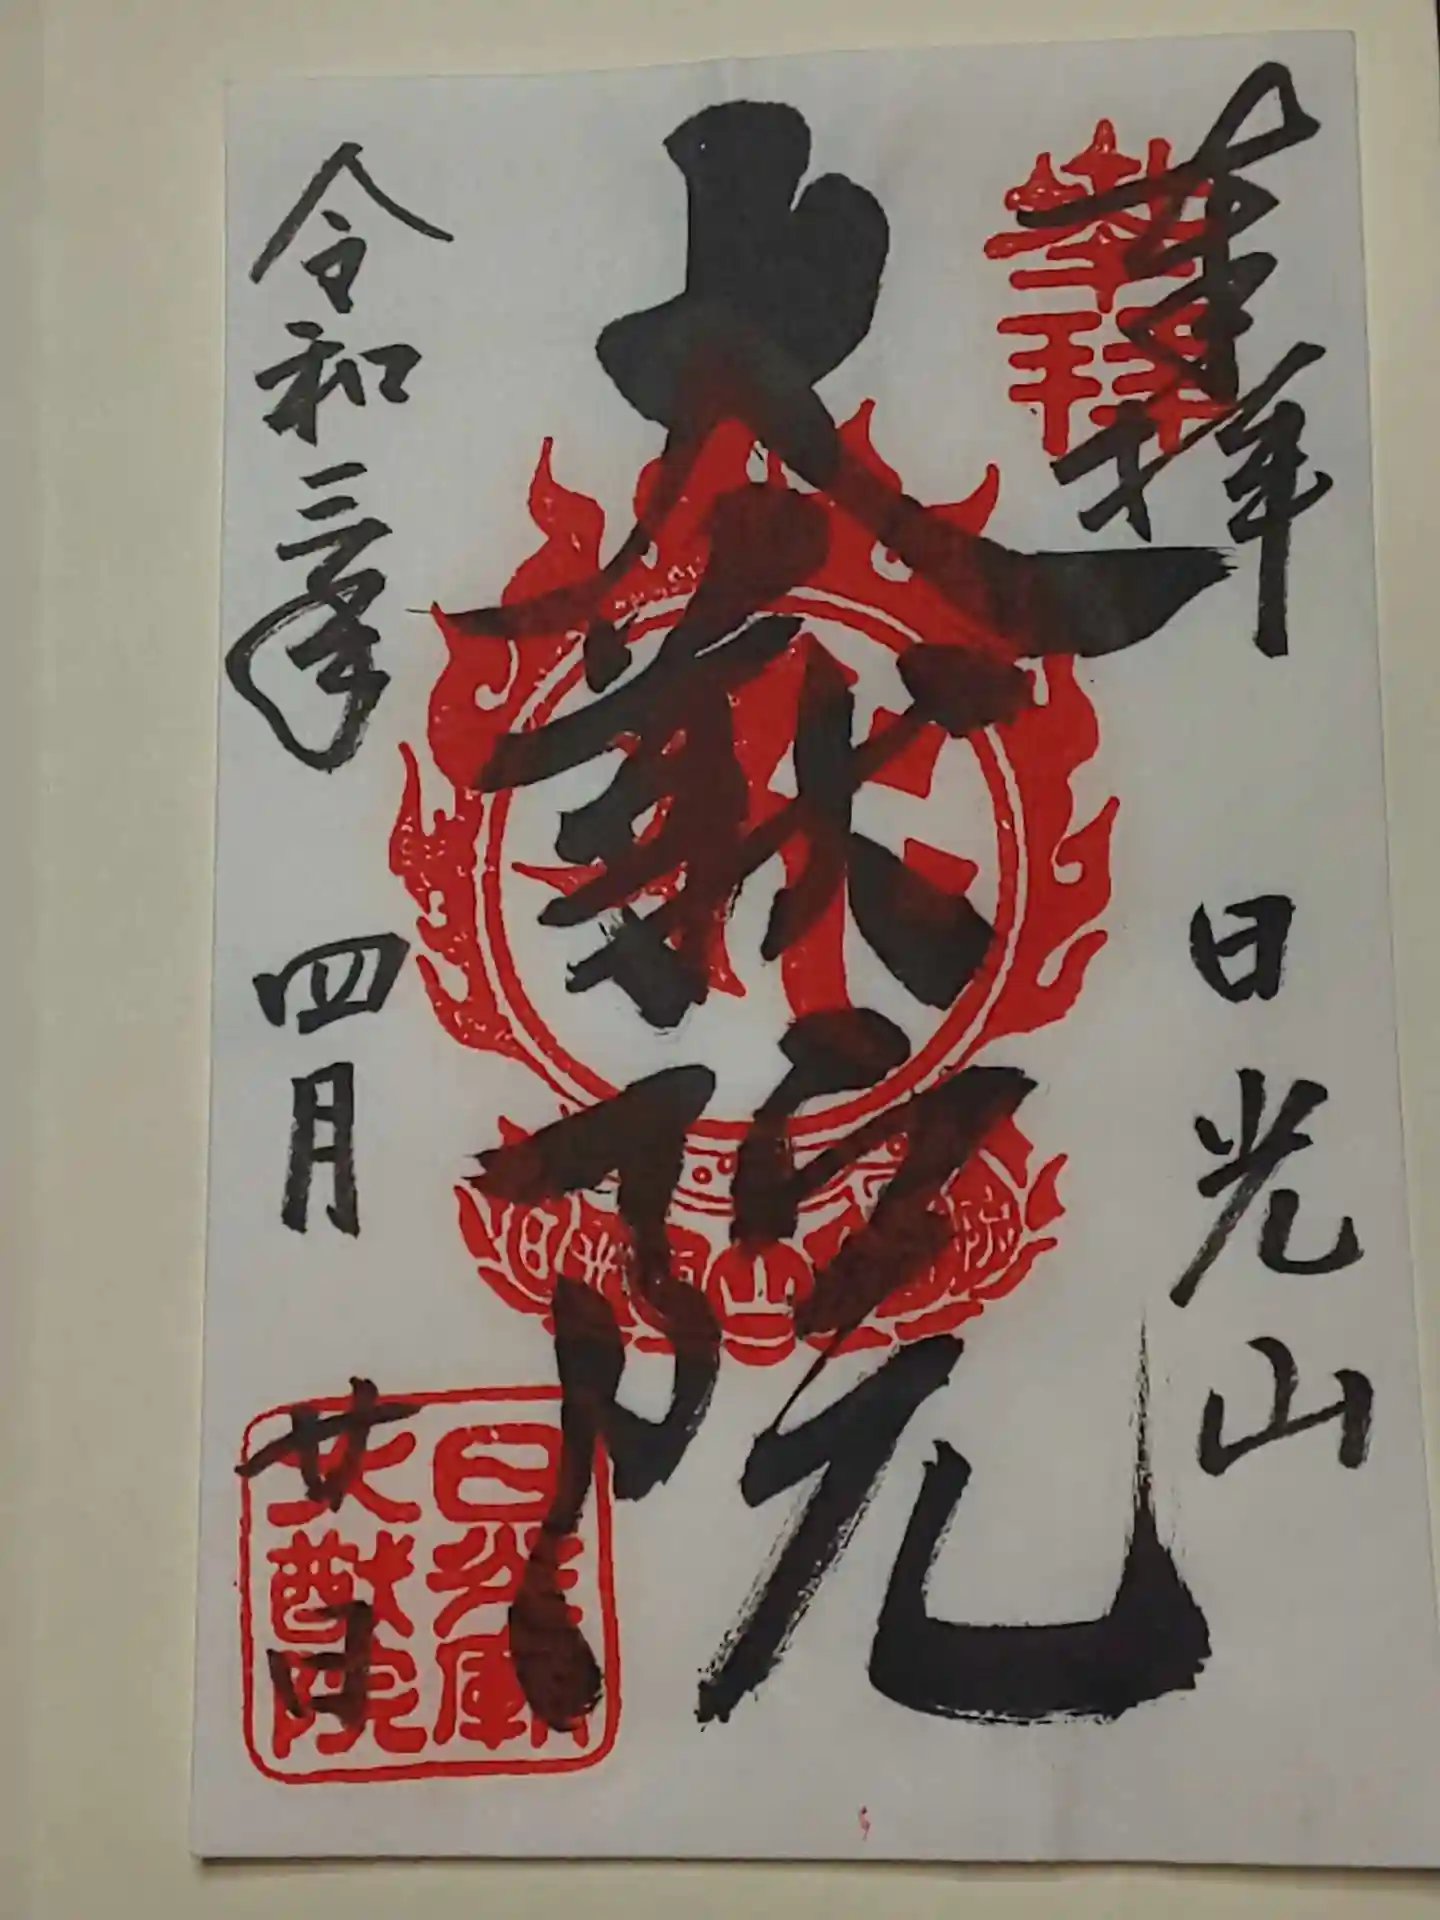 奉拝 日光山
奉拝
大猷院
令和三年 四月 廿日
日光廟
大猷院